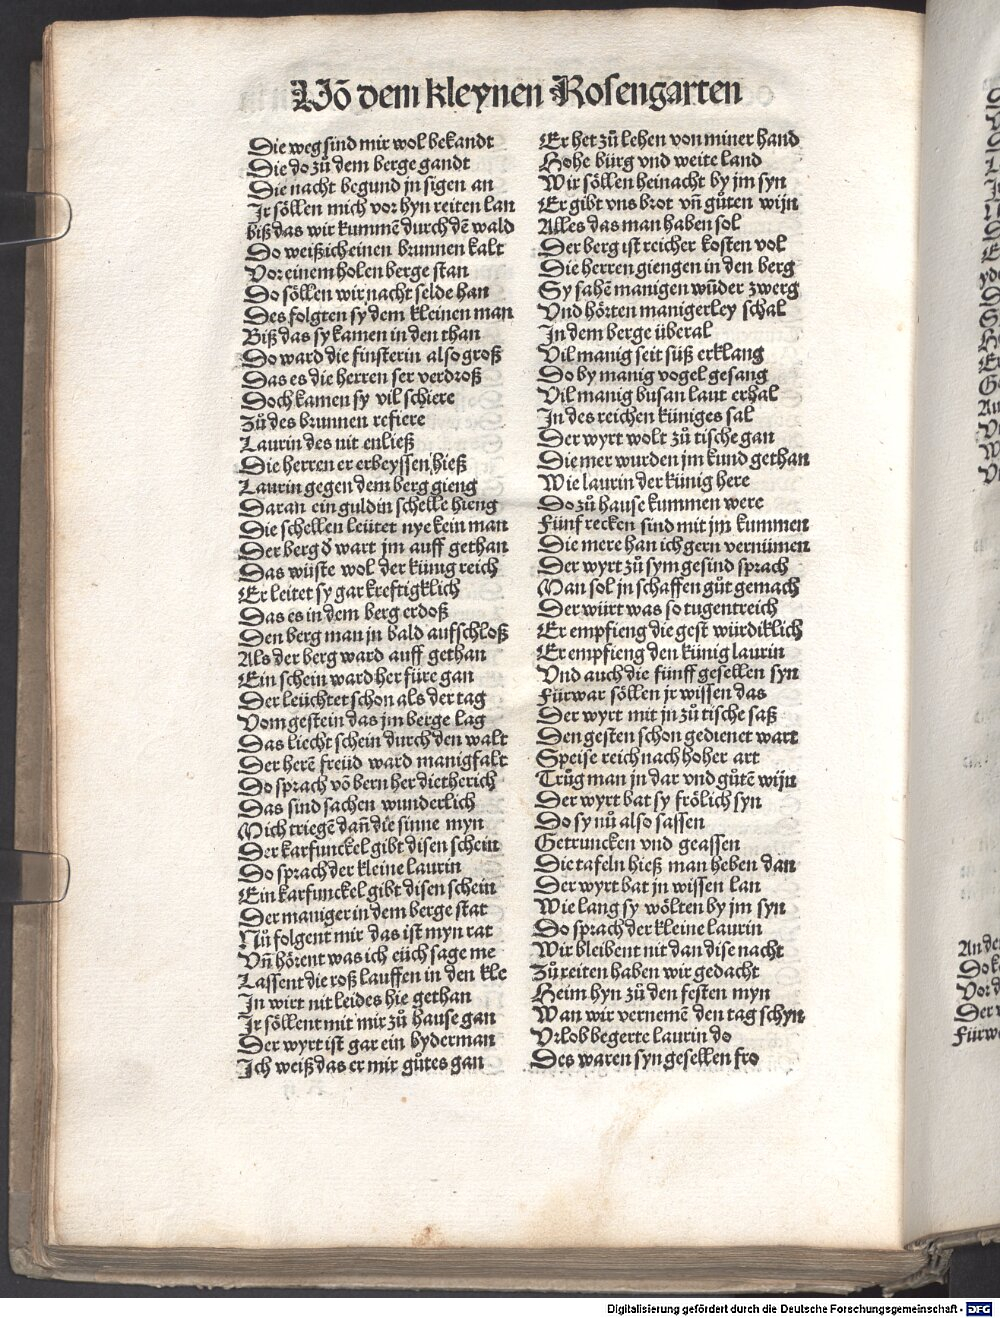 Võ dem kleynen Rosengarten
Die weg sind mir wol bekandt
Die do zů dem berge gandt
Die nacht begund jn sigen an
Jr söllen mich vor hyn reiten lan
biß das wir kummẽ durch dẽ wald
Do weiß ich einen brunnen kalt
Vor einem holen berge stan
Do söllen wir nacht selde han
Des folgten sy dem kleinen man
Biß das sy kamen in den than
Do ward die finsterin also groß
Das es die herren ser verdroß
Doch kamen sy vil schiere
Zů des brunnen refiere
Laurin des nit enließ
Die herren er erbeyssen hieß
Laurin gegen dem berg gieng
Daran ein guldin schelle hieng
Die schellen leütet nye kein man
Der berg ď wart jm auff gethan
Das wüste wol der künig reich
Er leitet sy gar kreftigklich
Das es in dem berg erdoß
Den berg man jn bald aufschloß
Als der berg ward auff gethan
Ein schein ward her füre gan
Der leüchtet schon als der tag
Vom gestein das jm berge lag
Das liecht schein durch den walt
Der herẽ freüd ward manigfalt
Do sprach võ bern her dietherich
Das sind sachen wunderlich
Mich triegẽ dañ die sinne myn
Der karfunckel gibt disen schein
Do sprach der kleine laurin
Ein karfunckel gibt disen schein
Der maniger in dem berge stat
Nů folgent mir das ist myn rat
Vñ hörent was ich eüch sage me
Lassent die roß lauffen in den kle
Jn wirt nit leides hie gethan
Jr söllent mit mir zů hause gan
Der wyrt ist gar ein byderman
Ich weiß das er mir gůtes gan
Er het zů lehen von miner hand
Hohe bürg vnd weite land
Wir söllen heinacht by jm syn
Er gibt vns brot vñ gůten wijn
Alles das man haben sol
Der berg ist reicher kosten vol
Die herren giengen in den berg
Sy sahẽ manigen wũder zwerg
Vnd hörten manigerley schal
In dem berge überal
Vil manig seit süß erklang
Do by manig vogel gesang
Vil manig busan laut erhal
In des reichen küniges sal
Der wyrt wolt zů tische gan
Die mer wurden jm kund gethan
Wie laurin der künig here
Do zů hause kummen were
Fünf recken sind mit jm kummen
Die mere han ich gern vernümen
Der wyrt zů sym gesind sprach
Man sol jn schaffen gůt gemach
Der würt was so tugentreich
Er empfieng die gest würdiklich
Er empfieng den künig laurin
Vnd auch die fünff gesellen syn
Fürwar söllen jr wissen das
Der wyrt mit jn zů tische saß
Den gesten schon gedienet wart
Speise reich nach hoher art
Trůg man jn dar vnd gůtẽ wijn
Der wyrt bat sy frölich syn
Do sy nů also sassen
Getruncken vnd geassen
Die tafeln hieß man heben dan
Der wyrt bat jn wissen lan
Wie lang sy wölten by jm syn
Do sprach der kleine laurin
Wir bleibent nit dan dise nacht
Zů reiten haben wir gedacht
Heim hyn zů den festen myn
Wan wir vernemẽ den tag schyn
Vrlob begerte laurin do
Des waren syn gesellen fro
Digitalisierung gefördert durch die Deutsche Forschungsgemeinschaft - DFG